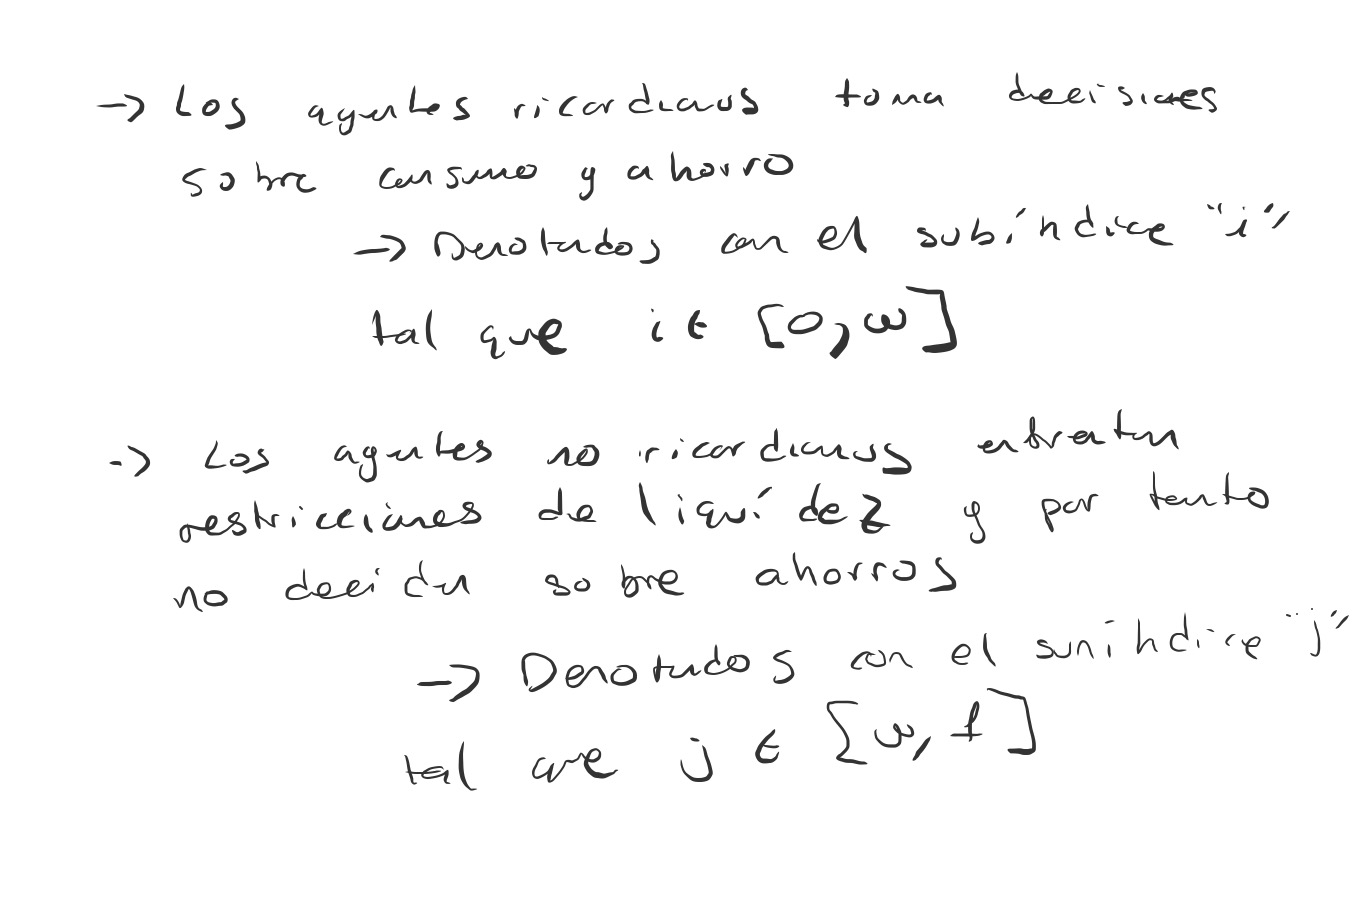 → Los agentes ricardianos toma decisiones
sobre consumo y ahorro
→ Denotados con el subíndice "i"
tal que i ∈ [0, ω]
→ Los agentes no ricardianos enfrentan
restricciones de liquídez y por tanto
no deciden sobre ahorros
→ Denotados con el suníndice "j"
tal que j ∈ [ω, 1]